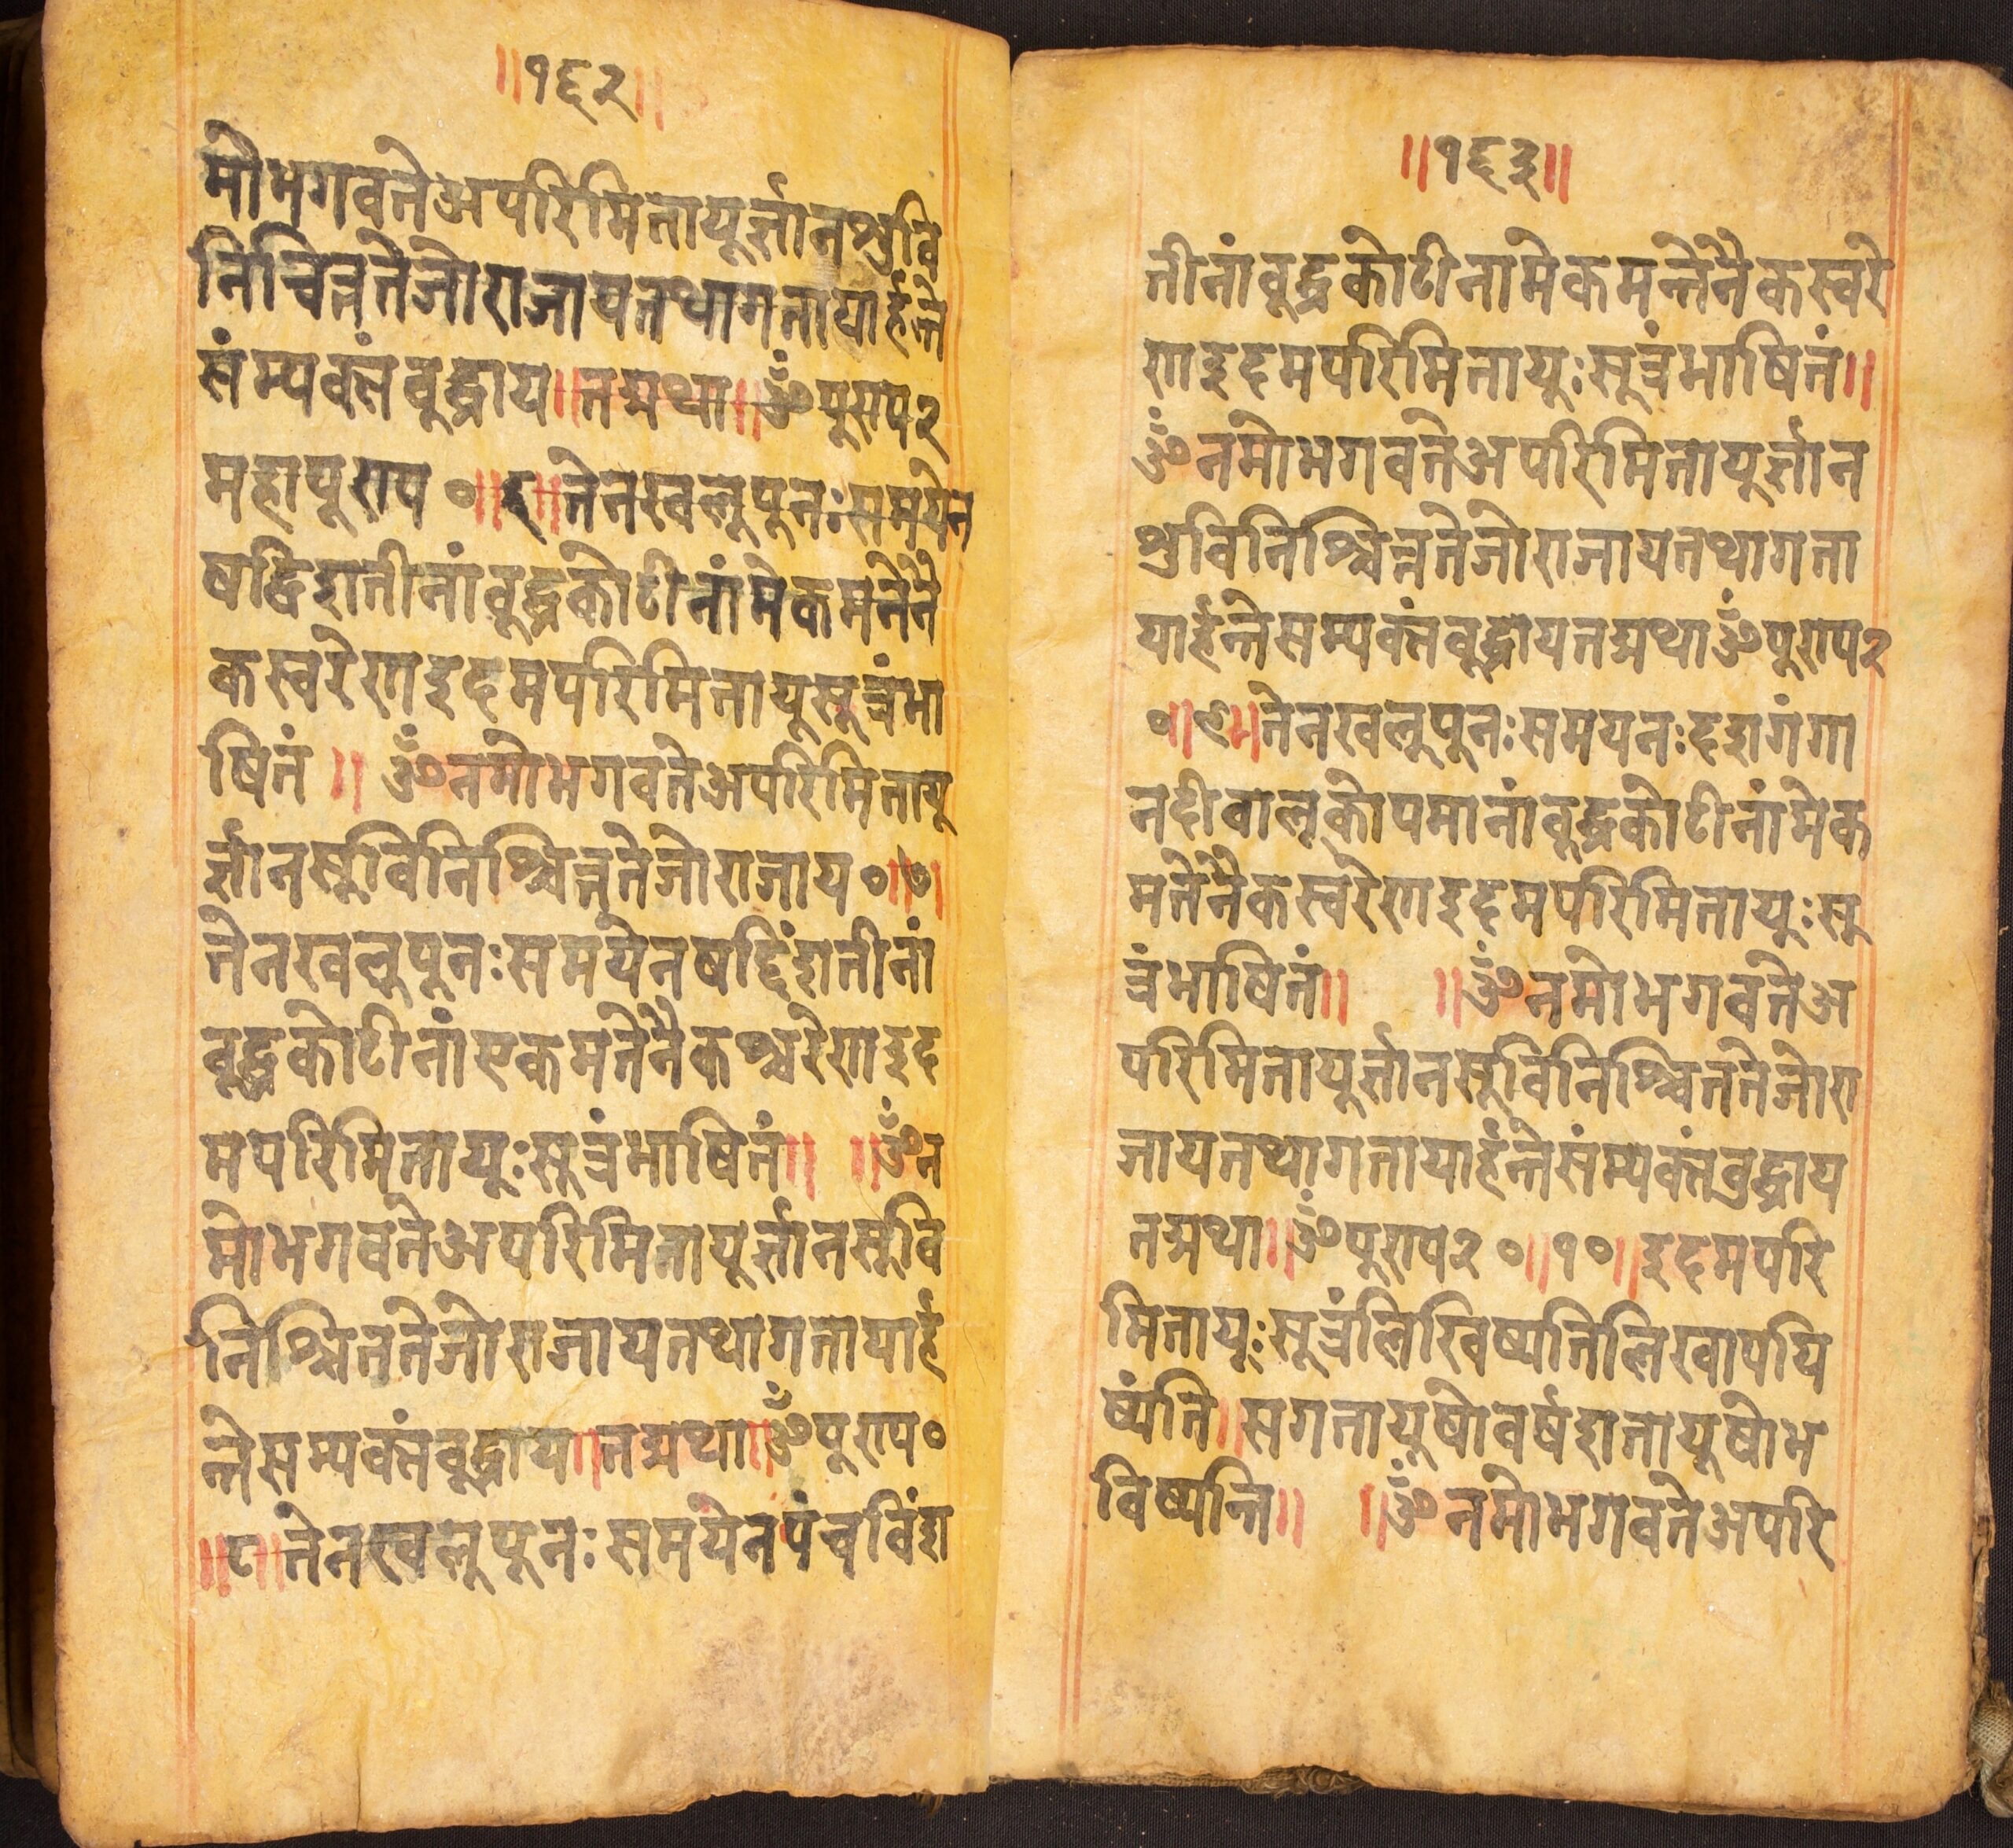 ॥१६२॥
मोभगवतेअपरिमितायूर्ज्ञानश्रुवि
निश्चित्नतेजोराजायतथागतायार्हन्ते
संम्यक्तंवुद्धाय॥तद्यथा॥ॐपुराप२
महापुराप०॥६॥तेनखलुपुनःसमयेन
षाद्विशतीनांवुद्धकोटीनांमेकमतेनै
कस्वरेराइदमपरिमितायूसूत्रंभा
षितं॥ ॐनमोभगवतेअपरिमितायू
र्ज्ञानसुविनिश्चित्नतेजोराजाय०॥७॥
तेनखलुपुनःसमयेनषद्विंशतीनां
वुद्धकोटीनांएकमतेनैकश्वरेराइद
मपरिमितायूःसूत्रंभाषितं॥ ॥ॐन
मोभगवतेअपरिमितायूर्ज्ञानसूवि
निश्चिततेजोराजायतथागतायार्ह
न्तेसम्यक्तंवुद्धाय॥तद्यथा॥ॐपुराप०
॥८॥तेनखलुपुनःसमयेनपंचविंश
॥१६३॥
तीनांवुद्धकोटीनामेकमन्तेनैकस्वरे
राइदमपरिमितायूःसूत्रंभाषितं॥
ॐनमोभगवतेअपरिमितायूर्ज्ञान
श्रुविनिश्चित्नतेजोराजायतथागता
यार्हन्तेसम्यक्तंवुद्धायतद्यथाॐपुराप२
०॥९॥तेनखलुपुनःसमयनःदशगंगा
नदीवालूकोपमानांवुद्धकोटीनांमेक
मतेनैकस्वरेराइदमपरिमितायूःसु
त्रंभाषितं॥ ॥ॐनमोभगवतेअ
परिमितायूर्ज्ञानसूविनिश्चिततेजोरा
जायतथागतायार्हंन्तेसंम्यक्तंवुद्धाय
तद्यथा॥ॐपुराप२०॥१०॥इदमपरि
मितायूःसूत्रंलिखिष्यतिलिखापयि
ष्यंति॥सगतायूषोवर्षशतायूषोभ
विष्यन्ति॥ ॥ॐनमोभगवतेअपरि